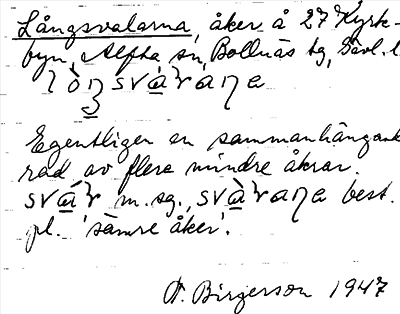 Långsvalarna, åker å 27 Kyrk-
byn, Alfta sn, Bollnäs tg, Gävl. l.
Egentligen en sammanhängand
rad av flera mindre åkrar.
m. sg., best.
pl. 'sämre åker'.
A. Birgerson 1947